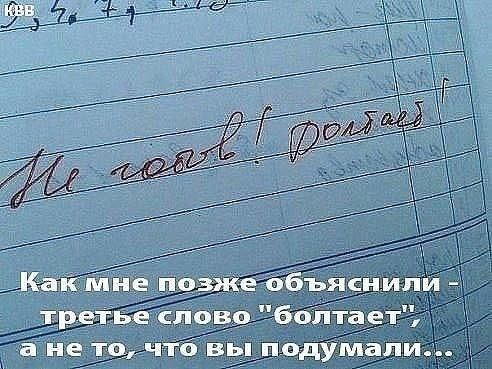 КВВ
3, 4, 7, 
Не готов! Болтает!
Как мне позже объяснили -
третье слово "болтает",
а не то, что вы подумали...